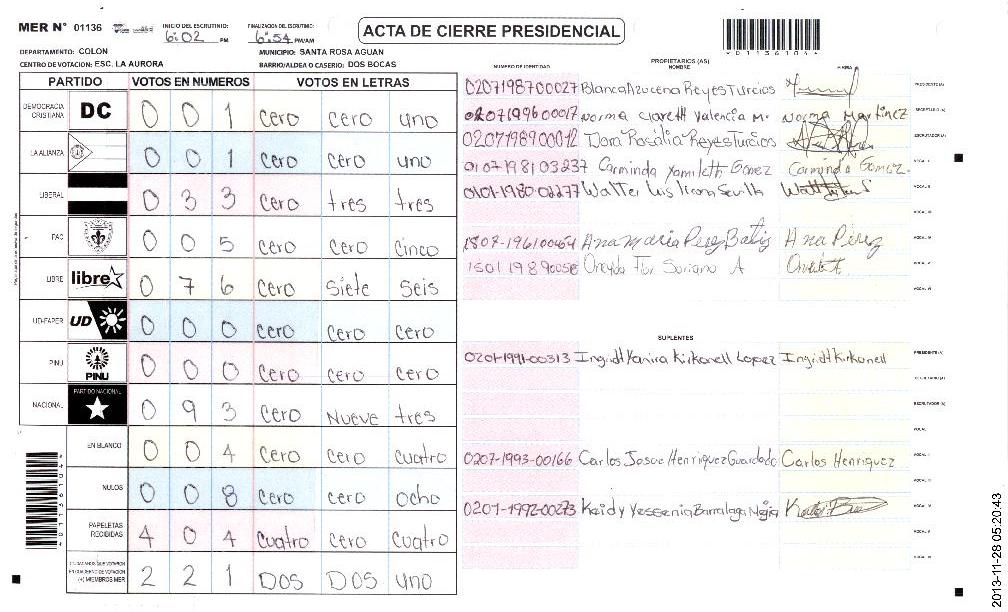 MER N° 01136
INICIO DEL ESCRUTINIO: 6:02 PM
FINALIZACION DEL ESCRUTINIO: 6:54 PM/AM
ACTA DE CIERRE PRESIDENCIAL
DEPARTAMENTO: COLON
MUNICIPIO: SANTA ROSA AGUAN
CENTRO DE VOTACION: ESC. LA AURORA
BARRIO/ALDEA O CASERIO: DOS BOCAS
PARTIDO VOTOS EN NUMEROS VOTOS EN LETRAS
DEMOCRACIA CRISTIANA DC 0 0 1 cero cero uno
LA ALIANZA 0 0 1 cero cero uno
LIBERAL 0 3 3 cero tres tres
PAC 0 0 5 cero cero cinco
LIBRE libre 0 7 6 cero siete seis
UD-FAPER UD 0 0 0 cero cero cero
PINU PINU 0 0 0 cero cero cero
NACIONAL PARTIDO NACIONAL 0 9 3 cero Nueve tres
EN BLANCO 0 0 4 cero cero cuatro
NULOS 0 0 8 cero cero ocho
PAPELETAS RECIBIDAS 4 0 4 cuatro cero cuatro
CIUDADANOS QUE VOTARON EN CUADERNO DE VOTACION (+) MIEMBROS MER 2 2 1 DOS DOS uno
NUMERO DE IDENTIDAD
PROPIETARIOS (AS)
NOMBRE
FIRMA
0207198700027 Blanca Azucena Reyes Turcios PRESIDENTE (A)
0207199600017 Norma Clareth Valencia M. Norma Martinez SECRETARIO (A)
0207198900012 Dora Rosalia Reyes Turcios ESCRUTADOR (A)
0107198103237 Carminda Yamileth Gomez Carminda Gomez VOCAL I
0101-1980-02277 Walter Luis VOCAL II
VOCAL III
1807-1961 Ana Maria Perez Batiz Ana Pérez VOCAL IV
1501 1989 Soriano A VOCAL V
VOCAL VI
SUPLENTES
0201-1991-00313 Ingridt Yanira Kirkonell Lopez Ingridt Kirkonell PRESIDENTE (A)
SECRETARIO (A)
ESCRUTADOR (A)
VOCAL I
0207-1993-00166 Carlos Josue Henriquez Guardado Carlos Henriquez VOCAL II
VOCAL III
0207-1992-00273 Keidy Yessenia Barralaga Mejia VOCAL IV
VOCAL V
VOCAL VI
01136104
2013-11-28 05:20:43